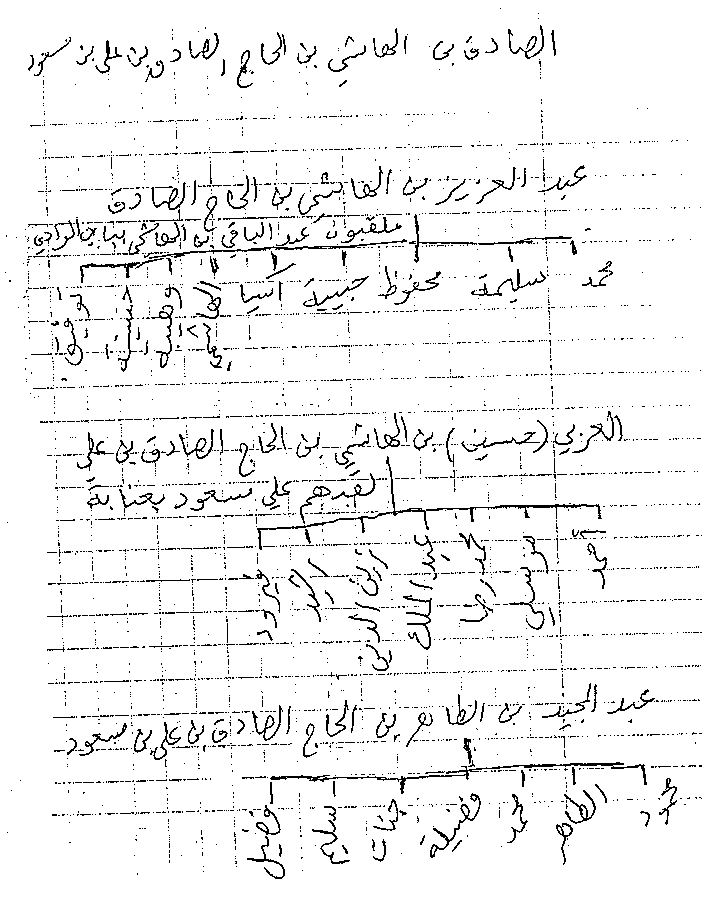 الصادق بن الهاشمي بن الحاج الصادق بن علي بن مسعود
عبد العزيز بن الهاشمي بن الحاج الصادق
ملقبون عبد الباقي بن الهاشمي
محمد سليمة محفوظ حبيبة آسيا الهاشمي وهيبة حسينة توفيق
العربي (حسين) بن الهاشمي بن الحاج الصادق بن علي
لقبهم علي مسعود بعنابة
أحمد مرسلي محمد رضا عبد الملك زين الدين رشيد فيرود
عبد المجيد بن الطاهر بن الحاج الصادق بن علي بن مسعود
محمود الطاهر محمد فضيلة جنات سليم فضيل